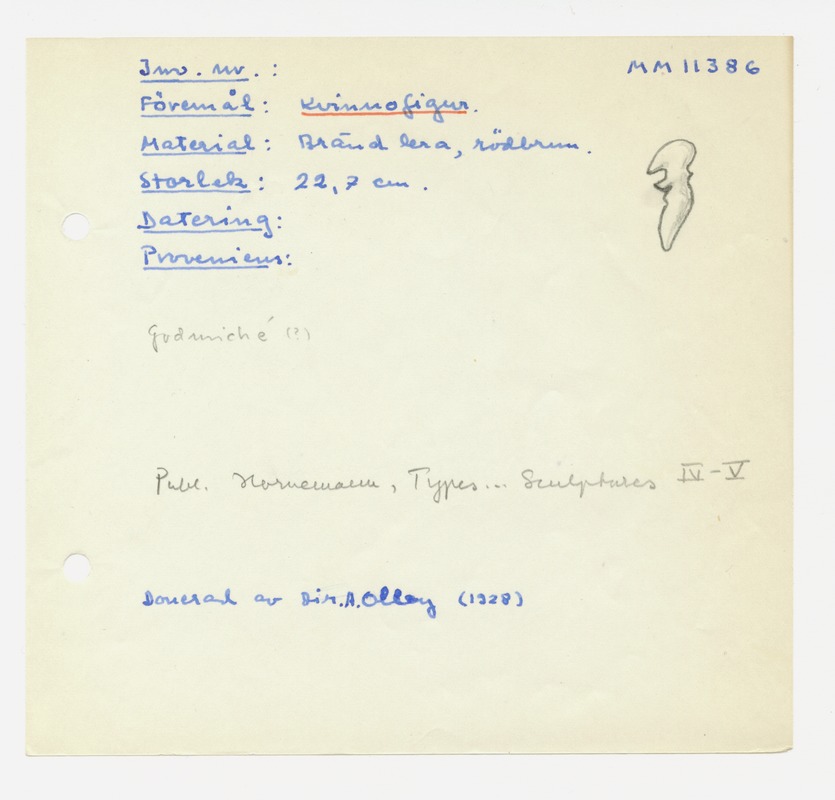 Inv. nr. : MM 11386
Föremål : Kvinnofigur.
Material : Bränd lera, rödbrun.
Storlek : 22,7 cm.
Datering:
Proveniens:
Godmiché (?)
Publ. Hornemann, Types... Sculptures IV-V
Donerad av Dir. A. Olley (1928)